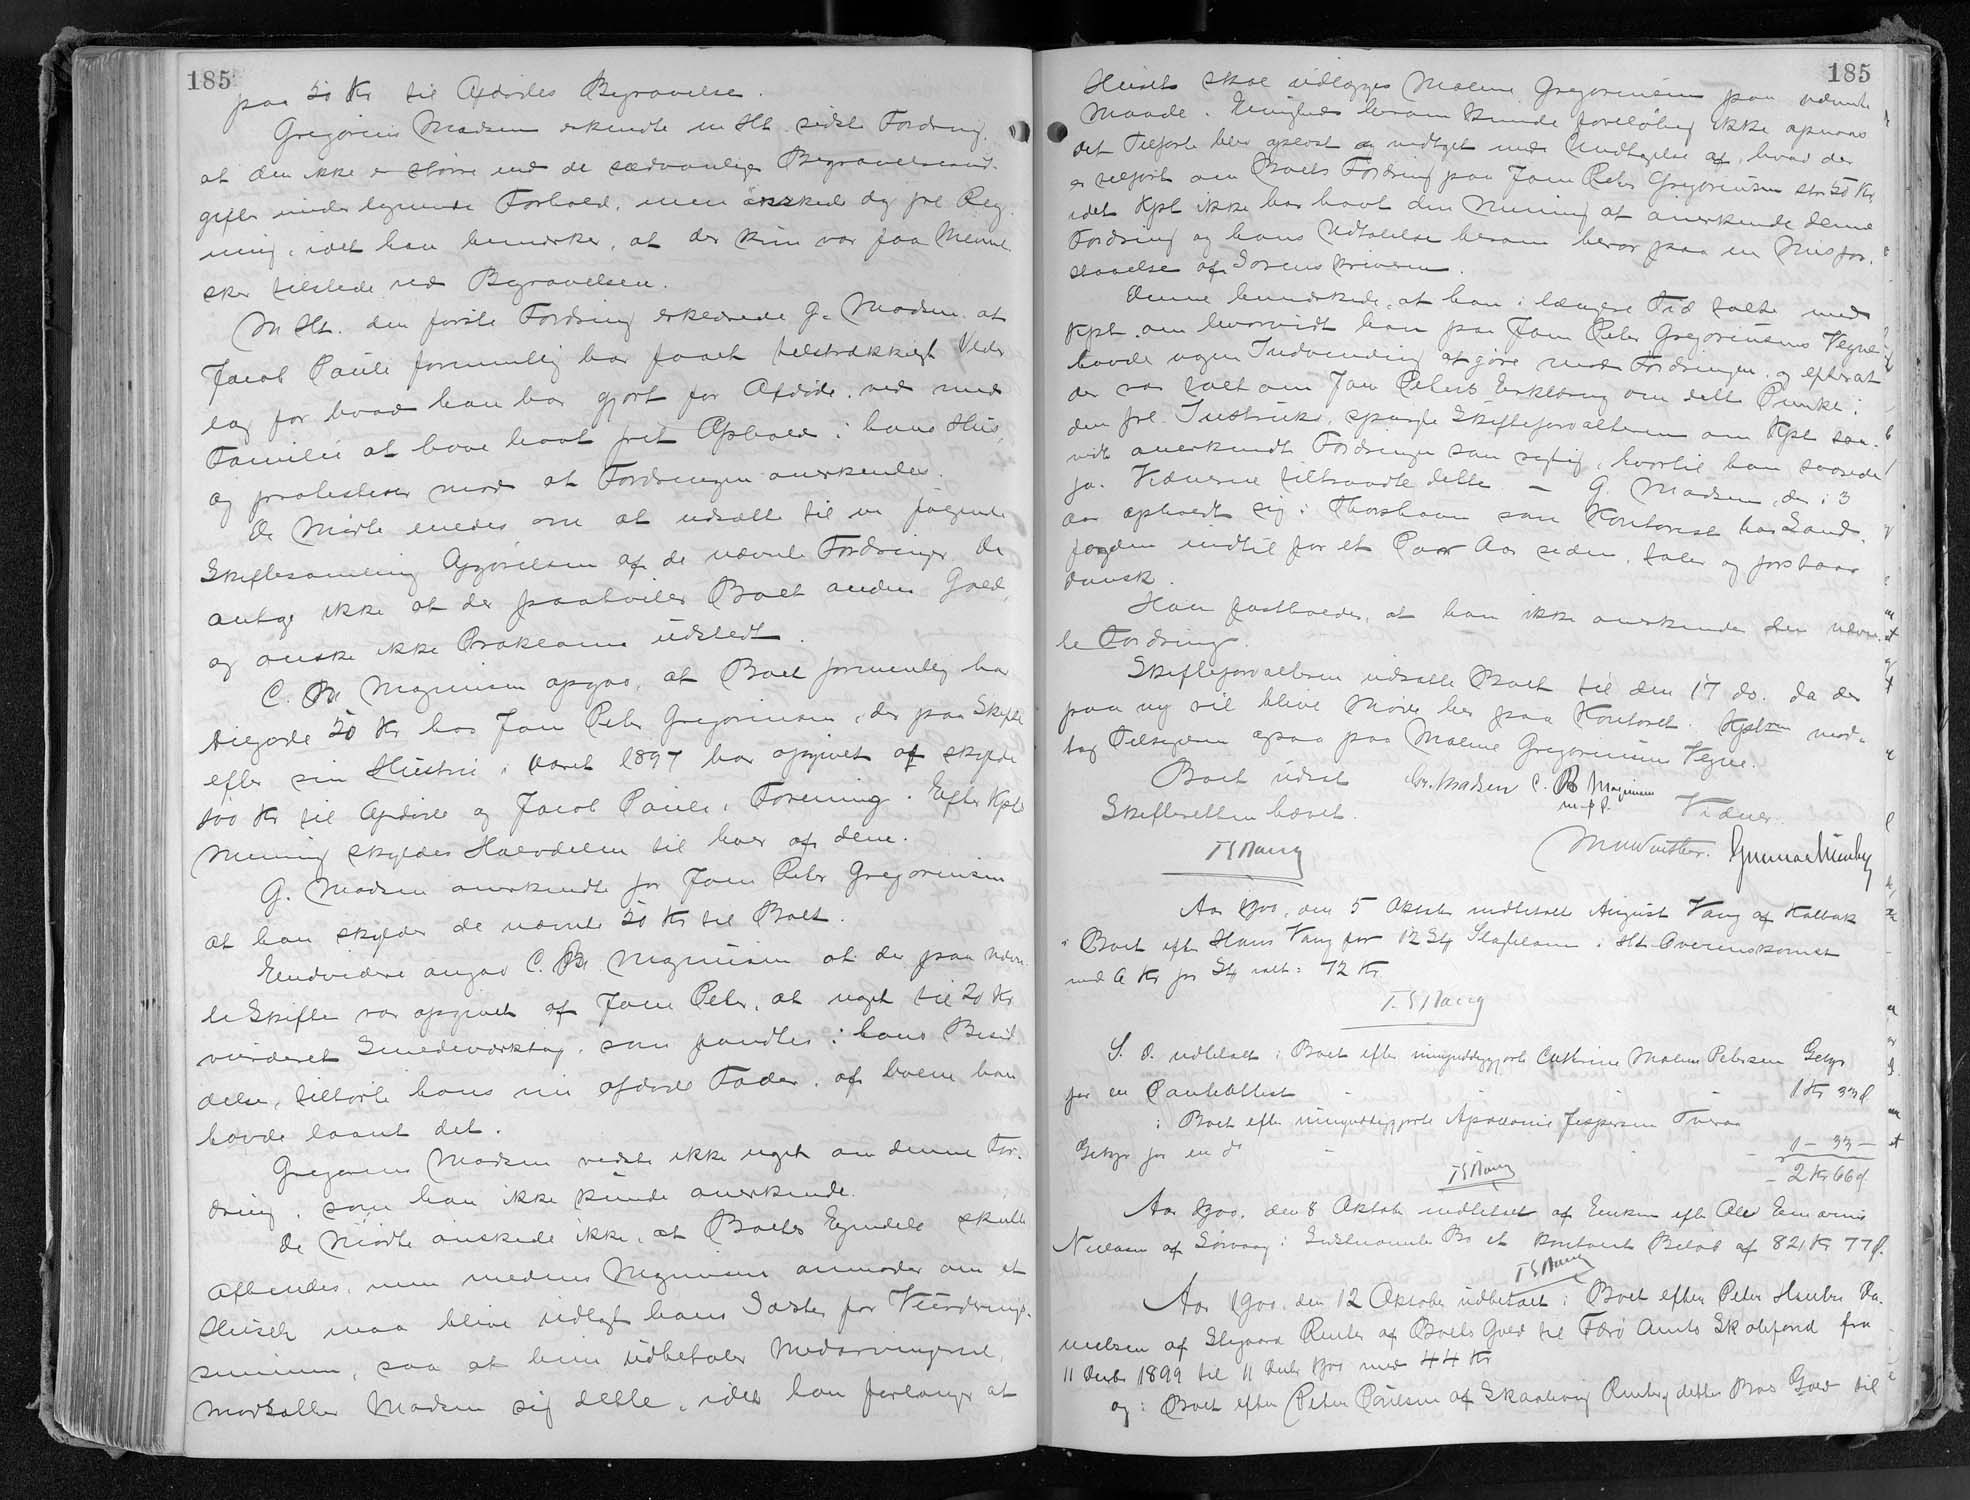 185
paa 50 Kr til Afdødes Begravelse.
Gregorius Madsen erkendte m Ht. sidste Fordring,
at den ikke er større end de sædvanlige Begravelsesud-
gifter under lignende Forhold, men ønskede dog spl Reg
ning, idet han bemærker, at der kun var faa Menne
sker tilstede ved Begravelsen.
M Ht. den første Fordring erklærede G. Madsen at
Jacob Pauli formentlig har faaet tilstrækkeligt Veder
lag for hvad han har gjort for Afdøde, ved med
Familie at have havt frit Ophold i hans Hus,
og protesterer mod at Fordringen anerkendes.
De Mødte enedes om at udsætte til en følgende
Skiftesamling Afgørelsen af de nævnte Fordringer. De
antog ikke at der paahviler Boet anden Gæld,
og ønske ikke Proklama udstedt.
C. B. Magnussen opgav, at Boet formentlig har
tilgode 50 Kr hos Joen Peter Gregoriussen, der paa Skifte
efter sin Hustru i Aaret 1897 har opgivet at skylde
100 Kr til Afdøde og Jacob Pauli i Forening. Efter Kpts
Mening skyldes Halvdelen til hver af dem.
G. Madsen anerkendte for Joen Peter Gregoriussen
at han skylder de nævnte 50 Kr til Boet.
Endvidere angav C. B. Magnussen at der paa nævn
te Skifte var opgivet af Joen Peter, at noget til 20 Kr
vurderet Smedeværktøj, som fandtes i hans Besid
delse, tilhørte hans nu afdøde Fader, af hvem han
havde laant det.
Gregorius Madsen vidste ikke noget om denne For-
dring, som han ikke kunde anerkende.
De Mødte ønskede ikke, at Boets Ejendele skulde
afhændes, men medens Magnussen anmoder om at
Huset maa blive udlagt hans Søster for Vurderings-
summen, saa at hun udbetaler Medarvingerne,
modsætter Madsen sig dette, idet han forlanger at
185
Huset skal udlægges Malene Gregoriussen paa nævnte
Maade. Enighed herom kunde foreløbig ikke opnaas
det Tilførte blev oplæst og vedtaget med Undtagelse af, hvad der
er tilført om Boets Fordring paa Joen Peter Gregoriussen stor 50 Kr
idet Kpt ikke har havt den Mening at anerkende denne
Fordring og hans Udtalelse herom beror paa en Misfor-
staaelse af Sorenskriveren.
Denne bemærkede, at han i længere Tid talte med
Kpt. om hvorvidt han paa Joen Peter Gregoriussens Vegne
havde nogen Indvending at gøre mod Fordringen, og efter at
der var talt om Joen Peters Erklæring om dette Punkt i
den spl Instruks, spurgte Skifteforvalteren om Kpt saa-
vidt anerkendte Fordringen som rigtig, hvortil han svarede
ja. Vidnerne tiltraadte dette. — G. Madsen, der i 3
Aar opholdt sig i Thorshavn som Kontorist hos Land-
fogden indtil for et Par Aar siden, taler og forstaar
dansk.
Han fastholder, at han ikke anerkender den nævn-
te Fordring.
Skifteforvalteren udsatte Boet til den 17 ds. da der
paa ny vil blive Møde her paa Kontoret. Kptrne mod-
tog Tilsigelsen ogsaa paa Malene Gregoriussens Vegne.
Boet udsat Gr. Madsen C. B Magnussen
m. f. P.
Skifteretten hævet. Vidner.
Aar 1900, den 5 Oktober indbetalte August Vang af Kalbak
i Boet efter Hans Vang for 12 St Slagtelam i Ht Overenskomst
med 6 Kr pr St ialt: 72 Kr.
S. D. udbetalt i Boet efter umyndiggjorte Cathrine Malene Petersen Gebyr
for en Panteattest 1 Kr 33 Ø
i Boet efter umyndiggjorte Jespersen Tveraa
Gebyr for en do 1 — 33 —
2 Kr 66 Ø
Aar 1900, den 8 Oktober indbetalt af Enken efter Ole
Nielsen af Sørvaag i Boet kontant Beløb af 821 Kr 77 Ø.
Aar 1900, den 12 Oktober udbetalt i Boet efter Peter Da-
nielsen af Renter af Boets Gæld til Færø Amts Skolefond fra
11 Decbr 1899 til 11 Decbr 1900 med 44 Kr
og i Boet efter Peter Poulsen af Skaalevig Renter af dette Boes Gæld til